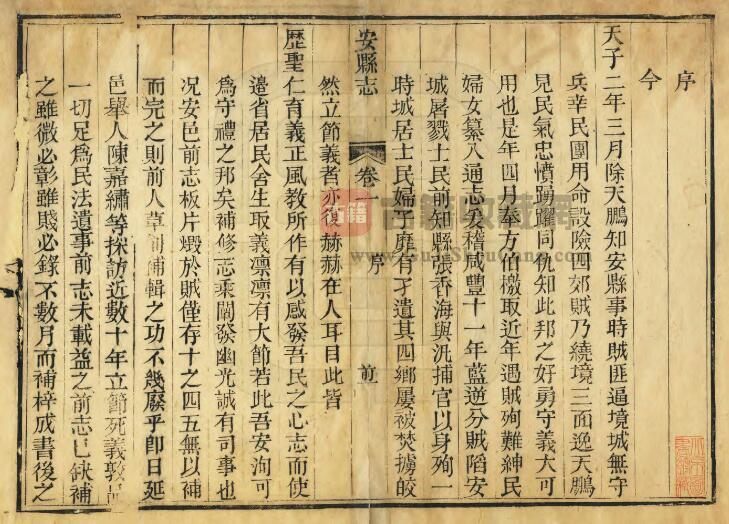 序
今
天子二年三月除天鵬知安縣事時賊匪逼境城無守
兵幸民團用命設險四郊賊乃繞境三面逸天鵬
見民氣忠憤踴躍同仇知此邦之好勇守義大可
用也是年四月奉方伯檄取近年遇賊殉難紳民
婦女纂入通志爰稽咸豐十一年藍逆分賊陷安
城屠戮士民前知縣張香海與汛捕官以身殉一
時城居士民婦子靡有孑遺其四鄉屢被焚擄皎
安縣志 卷一 序 前
然立節義者亦復赫赫在人耳目此皆
歷聖仁育義正風教所作有以感發吾民之心志而使
邊省居民舍生取義凛凛有大節若此吾安洵可
為守禮之邦矣補修志乘闡發幽光誠有司事也
況安邑前志板片燬於賊僅存十之四五無以補
而完之則前人草創補輯之功不幾廢乎卽日延
邑舉人陳嘉繡等採訪近數十年立節死義敦品
一切足為民法遺事前志未載益之前志已缺補
之雖微必彰雖賤必錄不數月而補梓成書後之